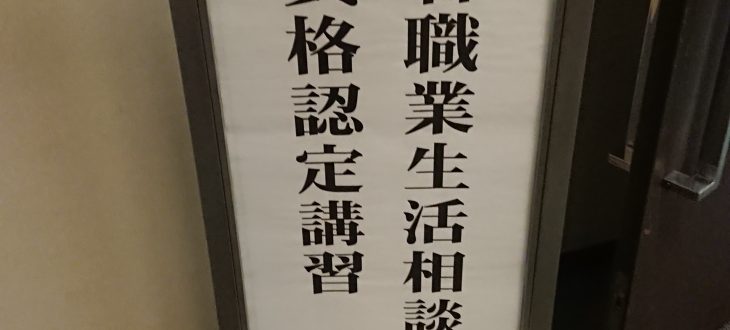 者職業生活相談
資格認定講習